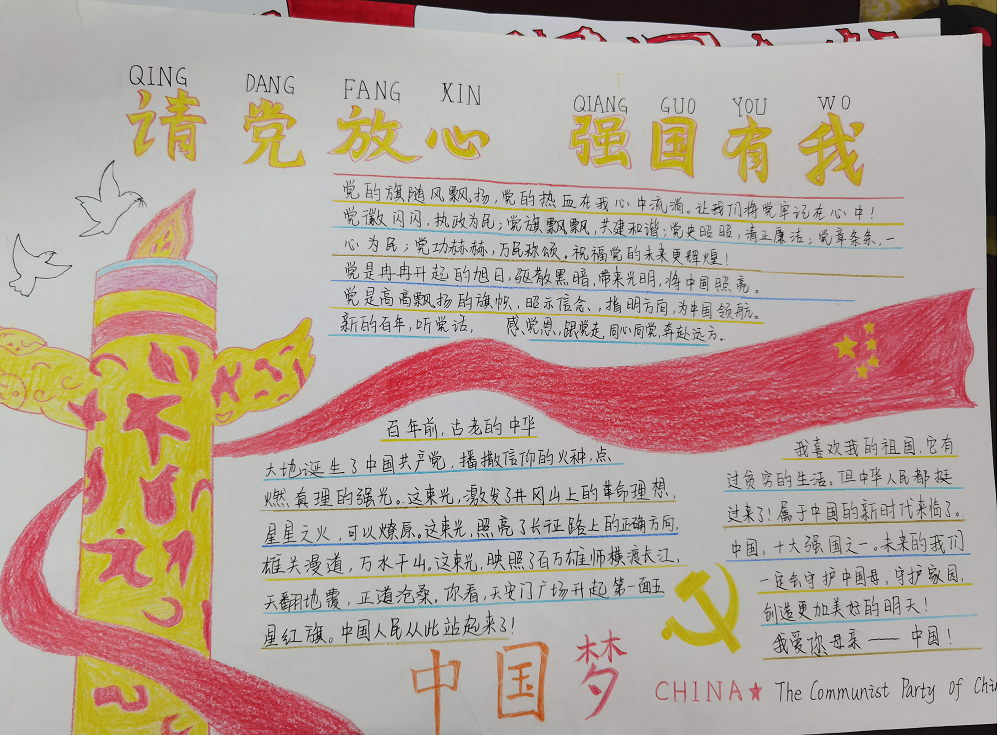 QING DANG FANG XIN QIANG GUO YOU WO
请党放心 强国有我
党的旗随风飘扬,党的热血在我心中流淌。让我们将党牢记在心中!
党徽闪闪,执政为民;党旗飘飘,共建和谐;党史昭昭,清正廉洁;党章条条,一
心为民;党功赫赫,万民称颂。祝福党的未来更辉煌!
党是冉冉升起的旭日,驱散黑暗,带来光明,将中国照亮。
党是高高飘扬的旗帜,昭示信念,指明方向,为中国领航。
新的百年,听党话, 感党恩,跟党走,同心同党,奔赴远方。
百年前,古老的中华
大地诞生了中国共产党,播撒信仰的火种,点
燃真理的强光。这束光,激发了井冈山上的革命理想,
星星之火,可以燎原。这束光,照亮了长征路上的正确方向,
雄关漫道,万水千山。这束光,映照了百万雄师横渡长江,
天翻地覆,正道沧桑。你看,天安门广场升起第一面五
星红旗。中国人民从此站起来了!
我喜欢我的祖国,它有
过贫穷的生活。但中华人民都挺
过来了!属于中国的新时代来临了。
中国,十大强国之一。未来的我们
一定会守护中国母,守护家园,
创造更加美好的明天!
我爱你母亲——中国!
中国梦
CHINA★ The Communist Party of Chin